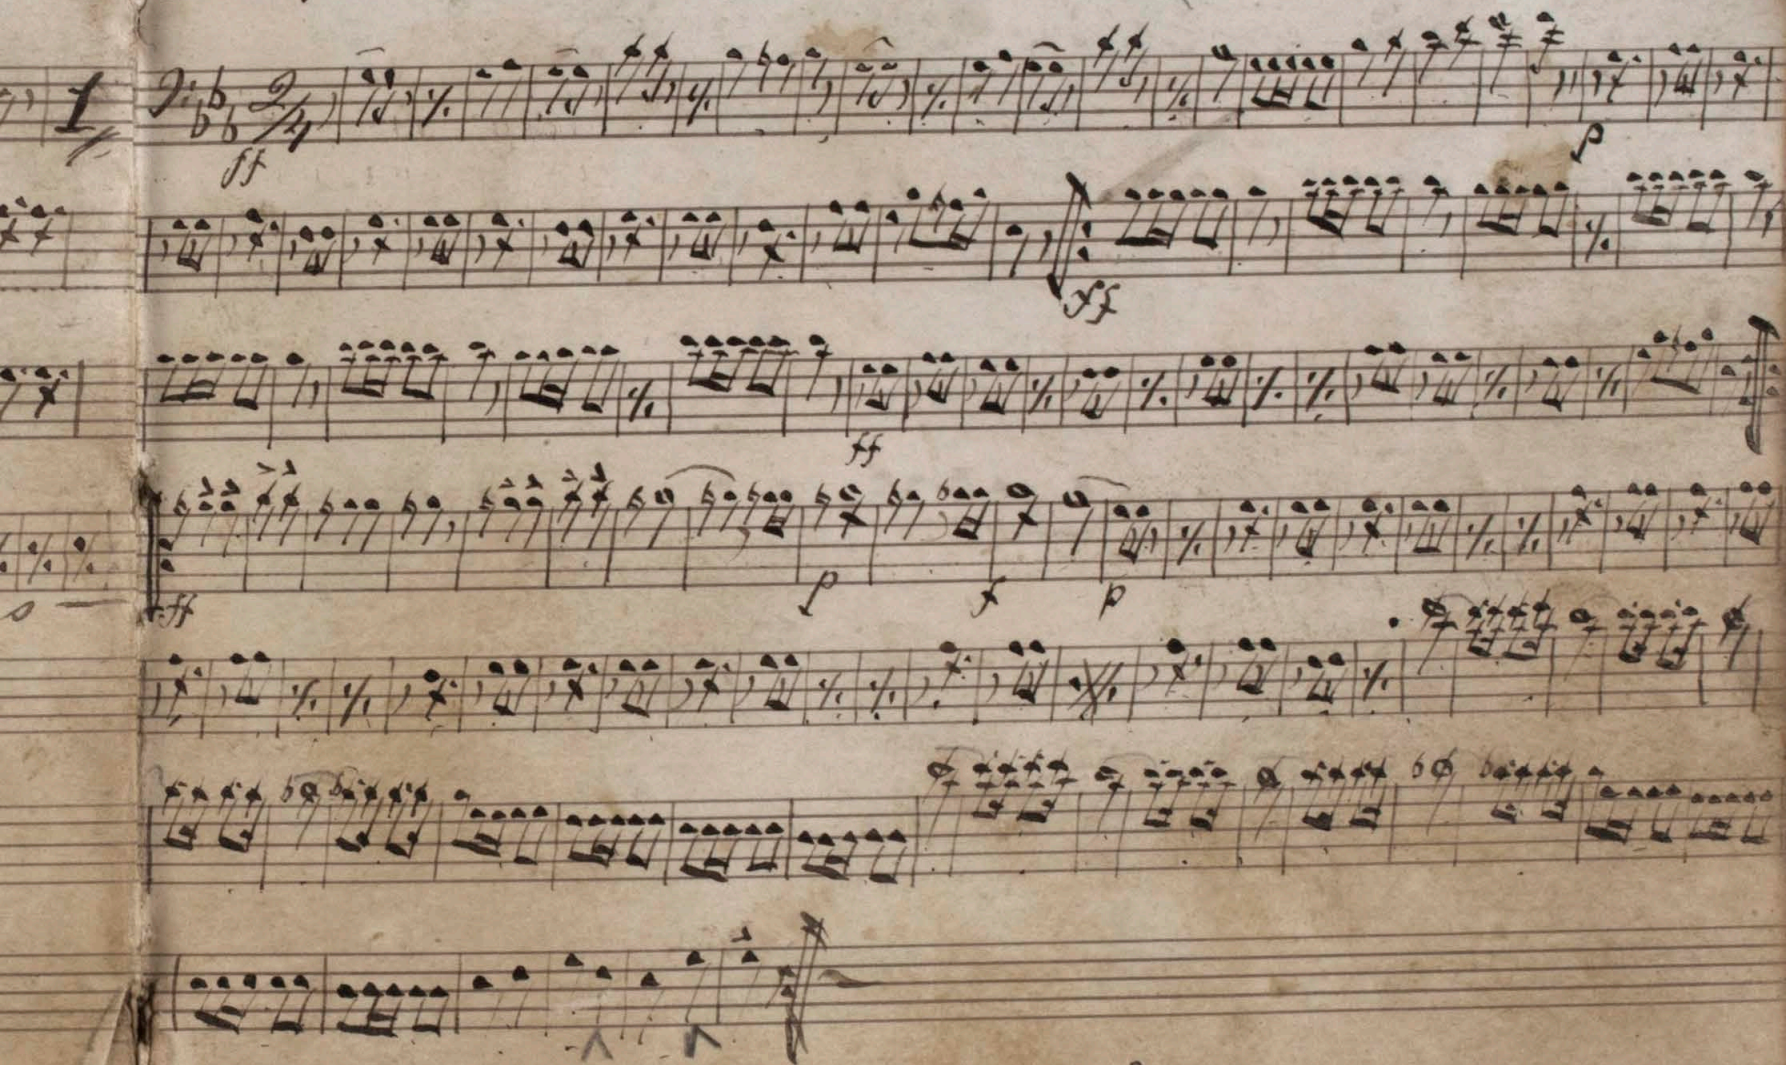 1 2/4
ff p
ff
ff
ff p f p